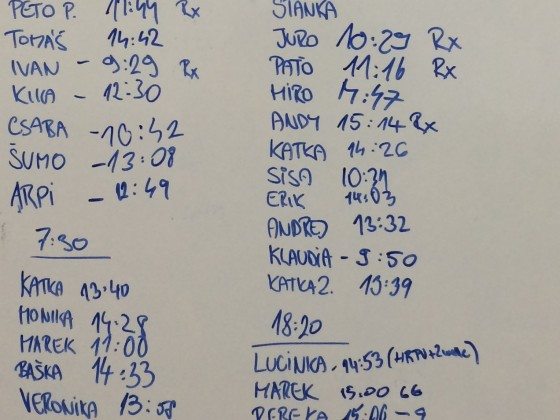 PEŤO P. 11:44 Rx
TOMÁŠ 14:42
IVAN - 9:29 Rx
KIKA - 12:30
CSABA -10:42
ŠUMO -13:08
ARPI - 12:49
7:30
KATKA 13:40
MONIKA 14:28
MAREK 11:00
BAŠKA 14:33
VERONIKA 13:58
JURO 10:29 Rx
PAŤO 11:16 Rx
MIRO
ANDY 15:14 Rx
KATKA 14:26
SISA
ERIK 14:03
ANDREJ 13:32
KLAUDIA - 9:50
KATKA 2.
18:20
LUCINKA - 14:53
MAREK 15:00 66